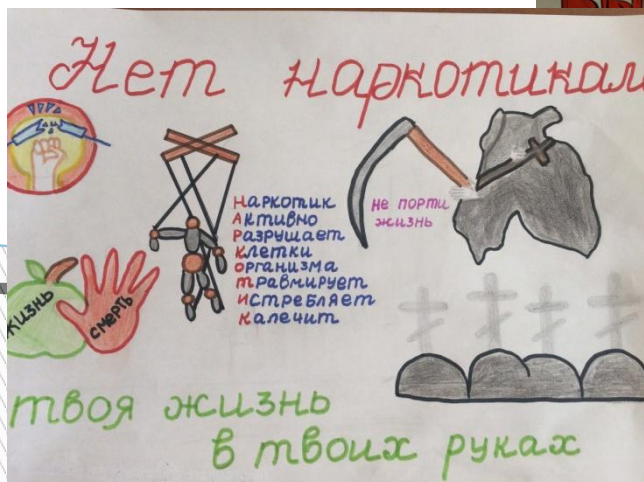 Нет наркотикам
не порти
жизнь
Наркотик
Активно
Разрушает
Клетки
Организма
Травмирует
Истребляет
Калечит
жизнь
смерть
твоя жизнь
в твоих руках